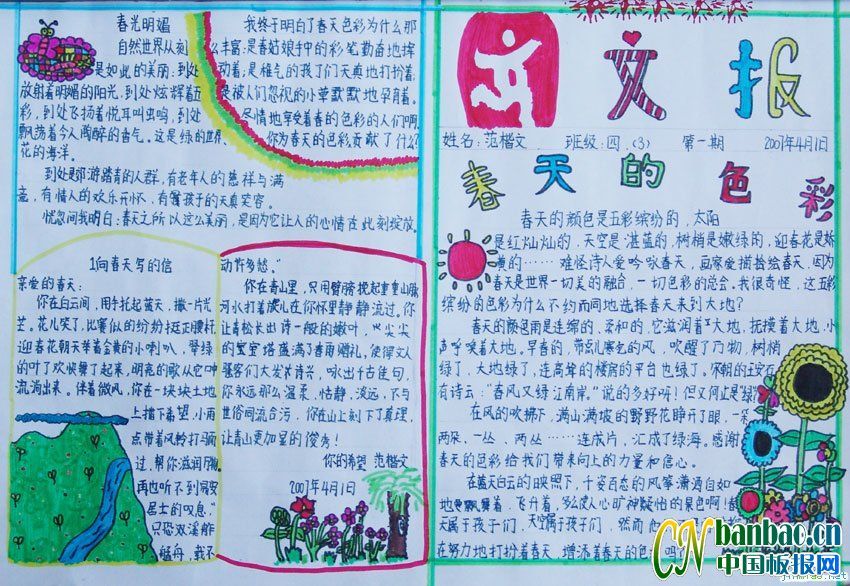 春光明媚
自然世界从刻
是如此的美丽:到处
放射着明媚的阳光,到处炫辉着五
彩,到处飞扬着悦耳虫鸣,到处
飘荡着令人陶醉的香气。这是绿的世界,
花的海洋。
到处是郊游踏青的人群,有老年人的慈祥与满
有情人的欢乐开怀,有
孩子的天真笑容。
恍忽间我明白:春天之所以这么美丽,是因为它让人的心情在此刻绽放。
我终于明白了春天色彩为什么那
么丰富:是春姑娘手中的彩笔勤奋地挥
动着;是稚气的孩子们天真地打扮着;
是被人们忽视的小草默默地孕育着。
尽情地享受着春的色彩的人们啊,
你为春天的色彩贡献了什么?
1向春天写的信
亲爱的春天:
你在白云间,用手托起蓝天,撒一片光
芒。花儿笑了,比赛似的纷纷挺正腰杆
迎春花朝天举着金黄的小喇叭,翠绿
的叶了欢快舞了起来,明亮的歌从它中
流淌出来。伴着微风,你在一块块土地
上播下希望,小雨
点带着风铃打马而
过,帮你滋润万物,
再也听不到易安
居士的叹息,“
只恐双溪舴
艋舟,载不
动许多愁。”
你在青山里,只用臂膀挽起重重山脉
河水打着旋儿在你怀里静静流过。你
让青松长出诗一般的嫩叶,尖尖
的宝塔盛满了春雨赠礼,使得文人
骚客们大发诗兴,咏出千古佳句,
你永远那么温柔、恬静、淡远,不与
世俗同流合污,你在山上刻下了真理,
让青山更加显的俊秀!
你的希望 范楷文
2007年4月1日
语文报
姓名:范楷文 班级:四.(3) 第一期 2007年4月1日
春天的色彩
春天的颜色是五彩缤纷的,太阳
是红灿灿的,天空是湛蓝的,树梢是嫩绿的,迎春花是娇
黄的……难怪诗人爱吟咏春天,画家爱描绘春天,因为
春天是世界一切美的融合,一切色彩的总会。我很奇怪,这五彩
缤纷的色彩为什么不约而同地选择春天来到大地?
春天的颜色雨是连绵的、柔和的,它滋润着大地,抚摸着大地,小
声呼唤着大地。早春的,带点儿寒气的风,吹醒了万物,树梢
绿了,大地绿了,连高耸的楼房的平台也绿了,宋朝的王安石
有诗云:“春风又绿江南岸。”说的多好听!但又何止是绿
在风的吹拂下,满山满坡的野野花睁开了眼,一朵
两朵、一丛、两丛……连成片,汇成了绿海。感谢
春天的色彩给我们带来向上的力量和信心。
在蓝天白云的映照下,千姿百态的风筝潇洒自如
地飘舞着,飞升着,多么使人心旷神怡的景色啊!春
天属于孩子们,天空属于孩子们,然而
在努力地打扮着春天,增添着春天的色彩吗?
CN banbao.cn
中国板报网